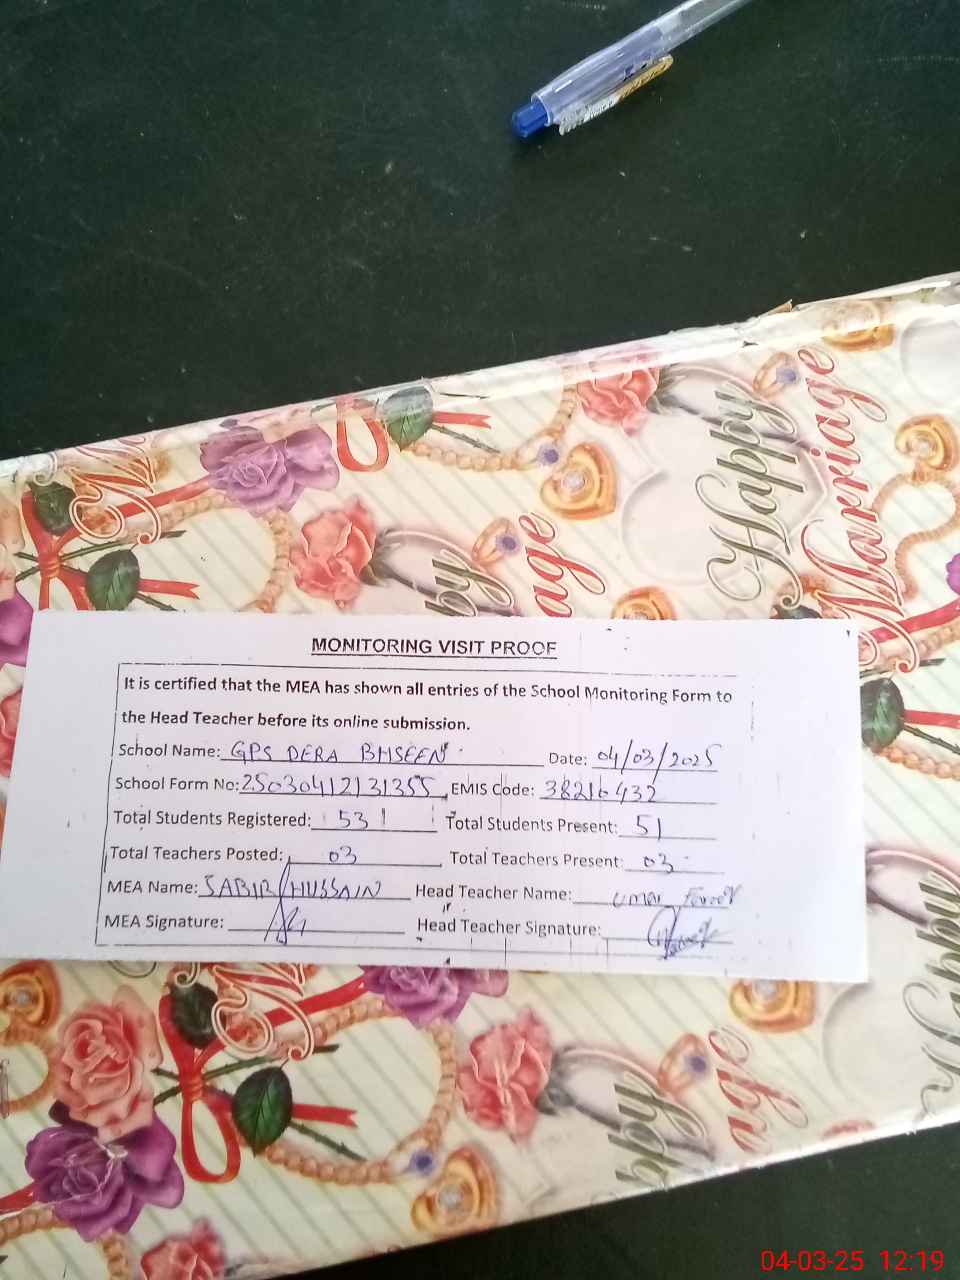 Happy
Marriage
MONITORING VISIT PROOF
It is certified that the MEA has shown all entries of the School Monitoring Form to
the Head Teacher before its online submission.
School Name: GPS DERA BHSEEN Date: 04/03/2025
School Form No: 25030412131355 EMIS Code: 38216432
Total Students Registered: 53 Total Students Present: 51
Total Teachers Posted: 03 Total Teachers Present: 03
MEA Name: SABIR HUSSAIN Head Teacher Name: Umar Farooq
MEA Signature: Head Teacher Signature:
Happy
04-03-25 12:19